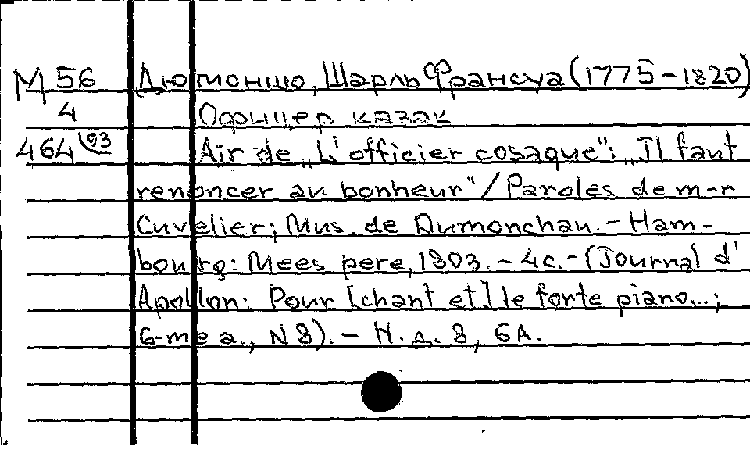 М 56 Дюмоншо, Шарль Франсуа (1775-1820)
4 Офицер казак
464 93 Air de „L'officier cosaque": „Il faut
renoncer au bonheur"/Paroles de m-r
Cuvelier; Mus. de Dumonchau. - Ham-
bourg: Mees pere, 1803. - 4c. - (Journal d'
Apollon: Pour [chant et] le forte piano...;
6-me a., N 8). - Н. д. 8, 6А.